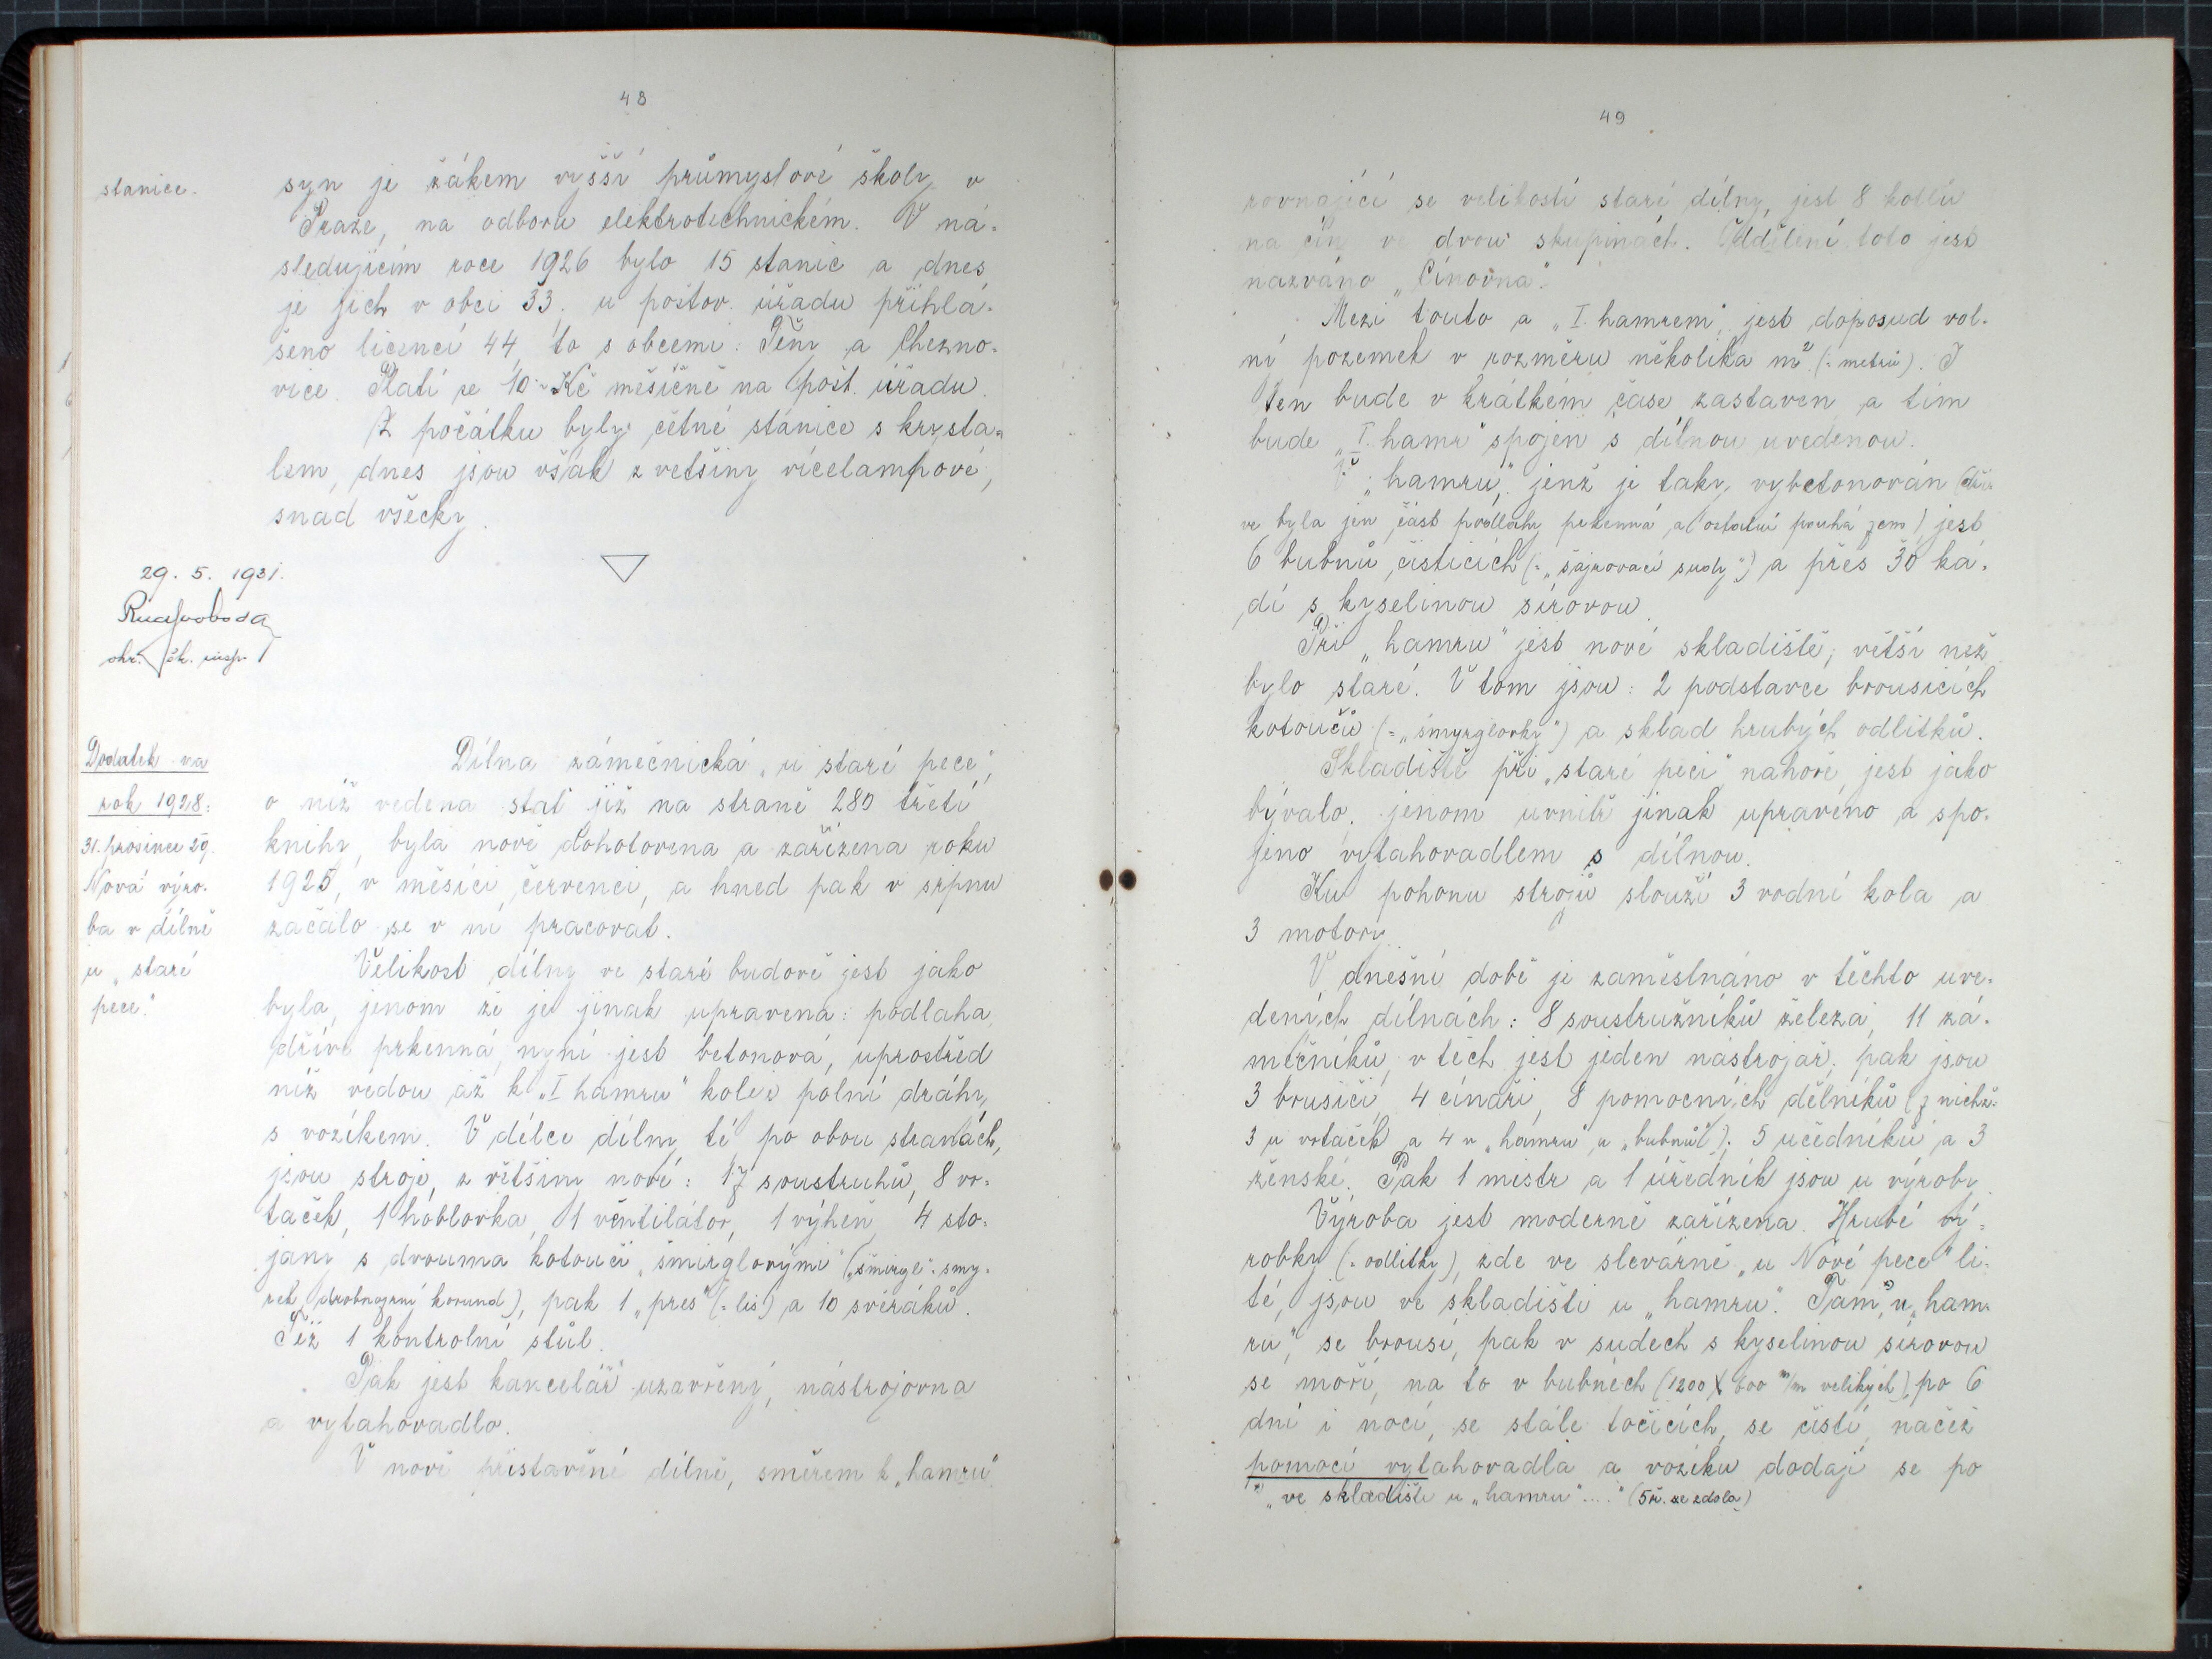 48
stanice.
syn je žákem vyšší průmyslové školy v
Praze, na odboru elektrotechnickém. V ná-
sledujícím roce 1926 bylo 15 stanic a dnes
je jich v obci 33, u poštov. úřadu přihlá-
šeno licencí 44, to s obcemi: Těně a Cheznovice.
vice. Platí se 10.- Kč měsíčně na pošt. úřadu.
Z počátku byly četné stanice s krysta-
lem, dnes jsou však z většiny vícelampové,
snad všecky.
29. 5. 1931.
Rud Svoboda
okr. šk. insp.
Dodatek na
rok 1928:
31. prosince 29.
Nová výro-
ba v dílně
u „staré
pece."
Dílna zámečnická „u staré pece",
o níž vedena stať již na straně 280 třetí
knihy, byla nově dohotovena a zařízena roku
1925, v měsíci červenci, a hned pak v srpnu
začalo se v ní pracovat.
Velikost dílny ve staré budově jest jako
byla, jenom že je jinak upravena: podlaha,
dříve prkenná, nyní jest betonová, uprostřed
níž vedou až k „I hamru" koleje polní dráhy,
s vozíkem. V délce dílny té po obou stranách,
jsou stroje, z většiny nové: 17 soustruhů, 8 vr-
taček, 1 hoblovka, 1 ventilátor, 1 výheň, 4 sto-
jany s dvouma kotouči „šmirglovými" („šmirgl": smy-
rek, drobnozrný korund), pak 1 „pres" (= lis) a 10 svěráků.
Též 1 kontrolní stůl.
Pak jest kancelář uzavřený, nástrojovna
a vytahovadlo.
V nově přistavěné dílně, směrem k „hamru"
49
rovnající se velikostí staré dílny, jest 8 kotlů
na cín ve dvou skupinách. Oddělení toto jest
nazváno „Cínovna".
Mezi touto a „I. hamrem", jest doposud vol-
ný pozemek v rozměru několika m² (= metrů). I
ten bude v krátkém čase zastaven a tím
bude „I. hamr" spojen s dílnou uvedenou.
V „hamru", jenž je taky vybetonován (dří-
ve byla jen část podlahy prkenná a ostatní pouhá zem) jest
6 bubnů čistících (= „šajrovací sudy") a přes 30 ká-
dí s kyselinou sírovou.
Při „hamru" jest nové skladiště, větší než
bylo staré. V tom jsou: 2 podstavce brousících
kotoučů (= „šmyrglovky") a sklad hrubých odlitků.
Skladiště při „staré peci" nahoře, jest jako
bývalo, jenom uvnitř jinak upraveno a spo-
jeno vytahovadlem s dílnou.
Ku pohonu strojů slouží 3 vodní kola a
3 motory.
V dnešní době je zaměstnáno v těchto uve-
dených dílnách: 8 soustružníků železa, 11 zá-
mečníků, v těch jest jeden nástrojař, pak jsou
3 brusiči, 4 cínaři, 8 pomocných dělníků (z nichž
3 u vrtaček a 4 v „hamru" u „bubnů"); 5 učedníků a 3
ženské. Pak 1 mistr a 1 úředník jsou u výroby.
Výroba jest moderně zařízena. Hrubé vý-
robky (= odlitky), zde ve slevárně „u Nové pece" li-
té, jsou ve skladišti u „hamru". Tam,*) u „ham-
ru", se brousí, pak v sudech s kyselinou sírovou
se moří, na to v bubnech (1200 X 800 m/m velikých), po 6
dní i nocí, se stále točících, se čistí, načež
pomocí vytahovadla a vozíku dodají se po
*) „ve skladišti u „hamru"...." (5 ř. ze zdola)